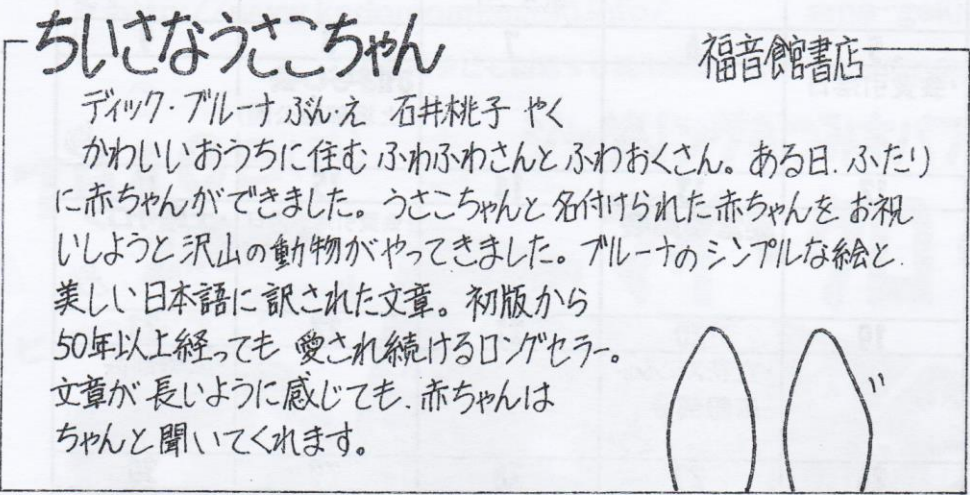 ちいさなうさこちゃん
福音館書店
ディック・ブルーナ ぶん・え 石井桃子 やく
かわいいおうちに住む ふわふわさんと ふわおくさん。ある日、ふたり
に赤ちゃんができました。うさこちゃんと名付けられた赤ちゃんを お祝
いしようと沢山の動物がやってきました。ブルーナのシンプルな絵と
美しい日本語に訳された文章。初版から
50年以上経っても 愛され続けるロングセラー。
文章が長いように感じても、赤ちゃんは
ちゃんと聞いてくれます。